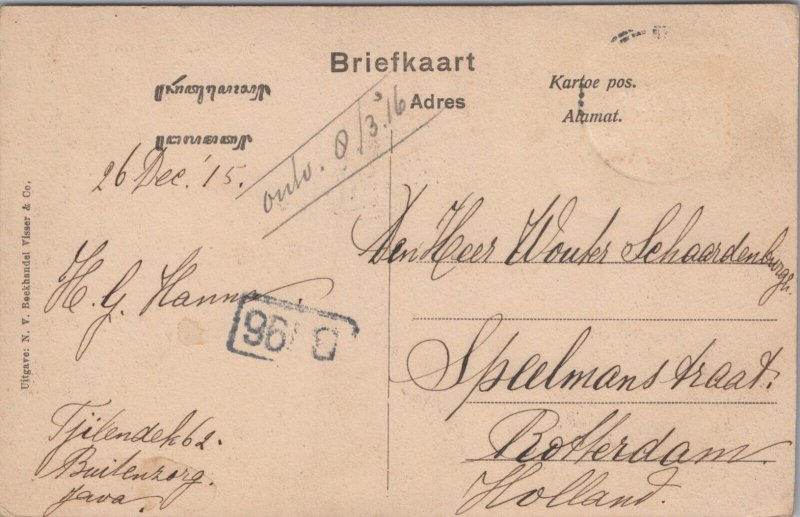 Briefkaart
Adres
Kartoe pos.
Alamat.
26 Dec. '15.
ontv. 8/3.'16
H. G. Hanna.
Tjilendek 62.
Buitenzorg.
Java.
Den Heer Wouter Schaardenburgh.
Speelmanstraat.
Rotterdam
Holland.
Uitgave: N. V. Boekhandel Visser & Co.